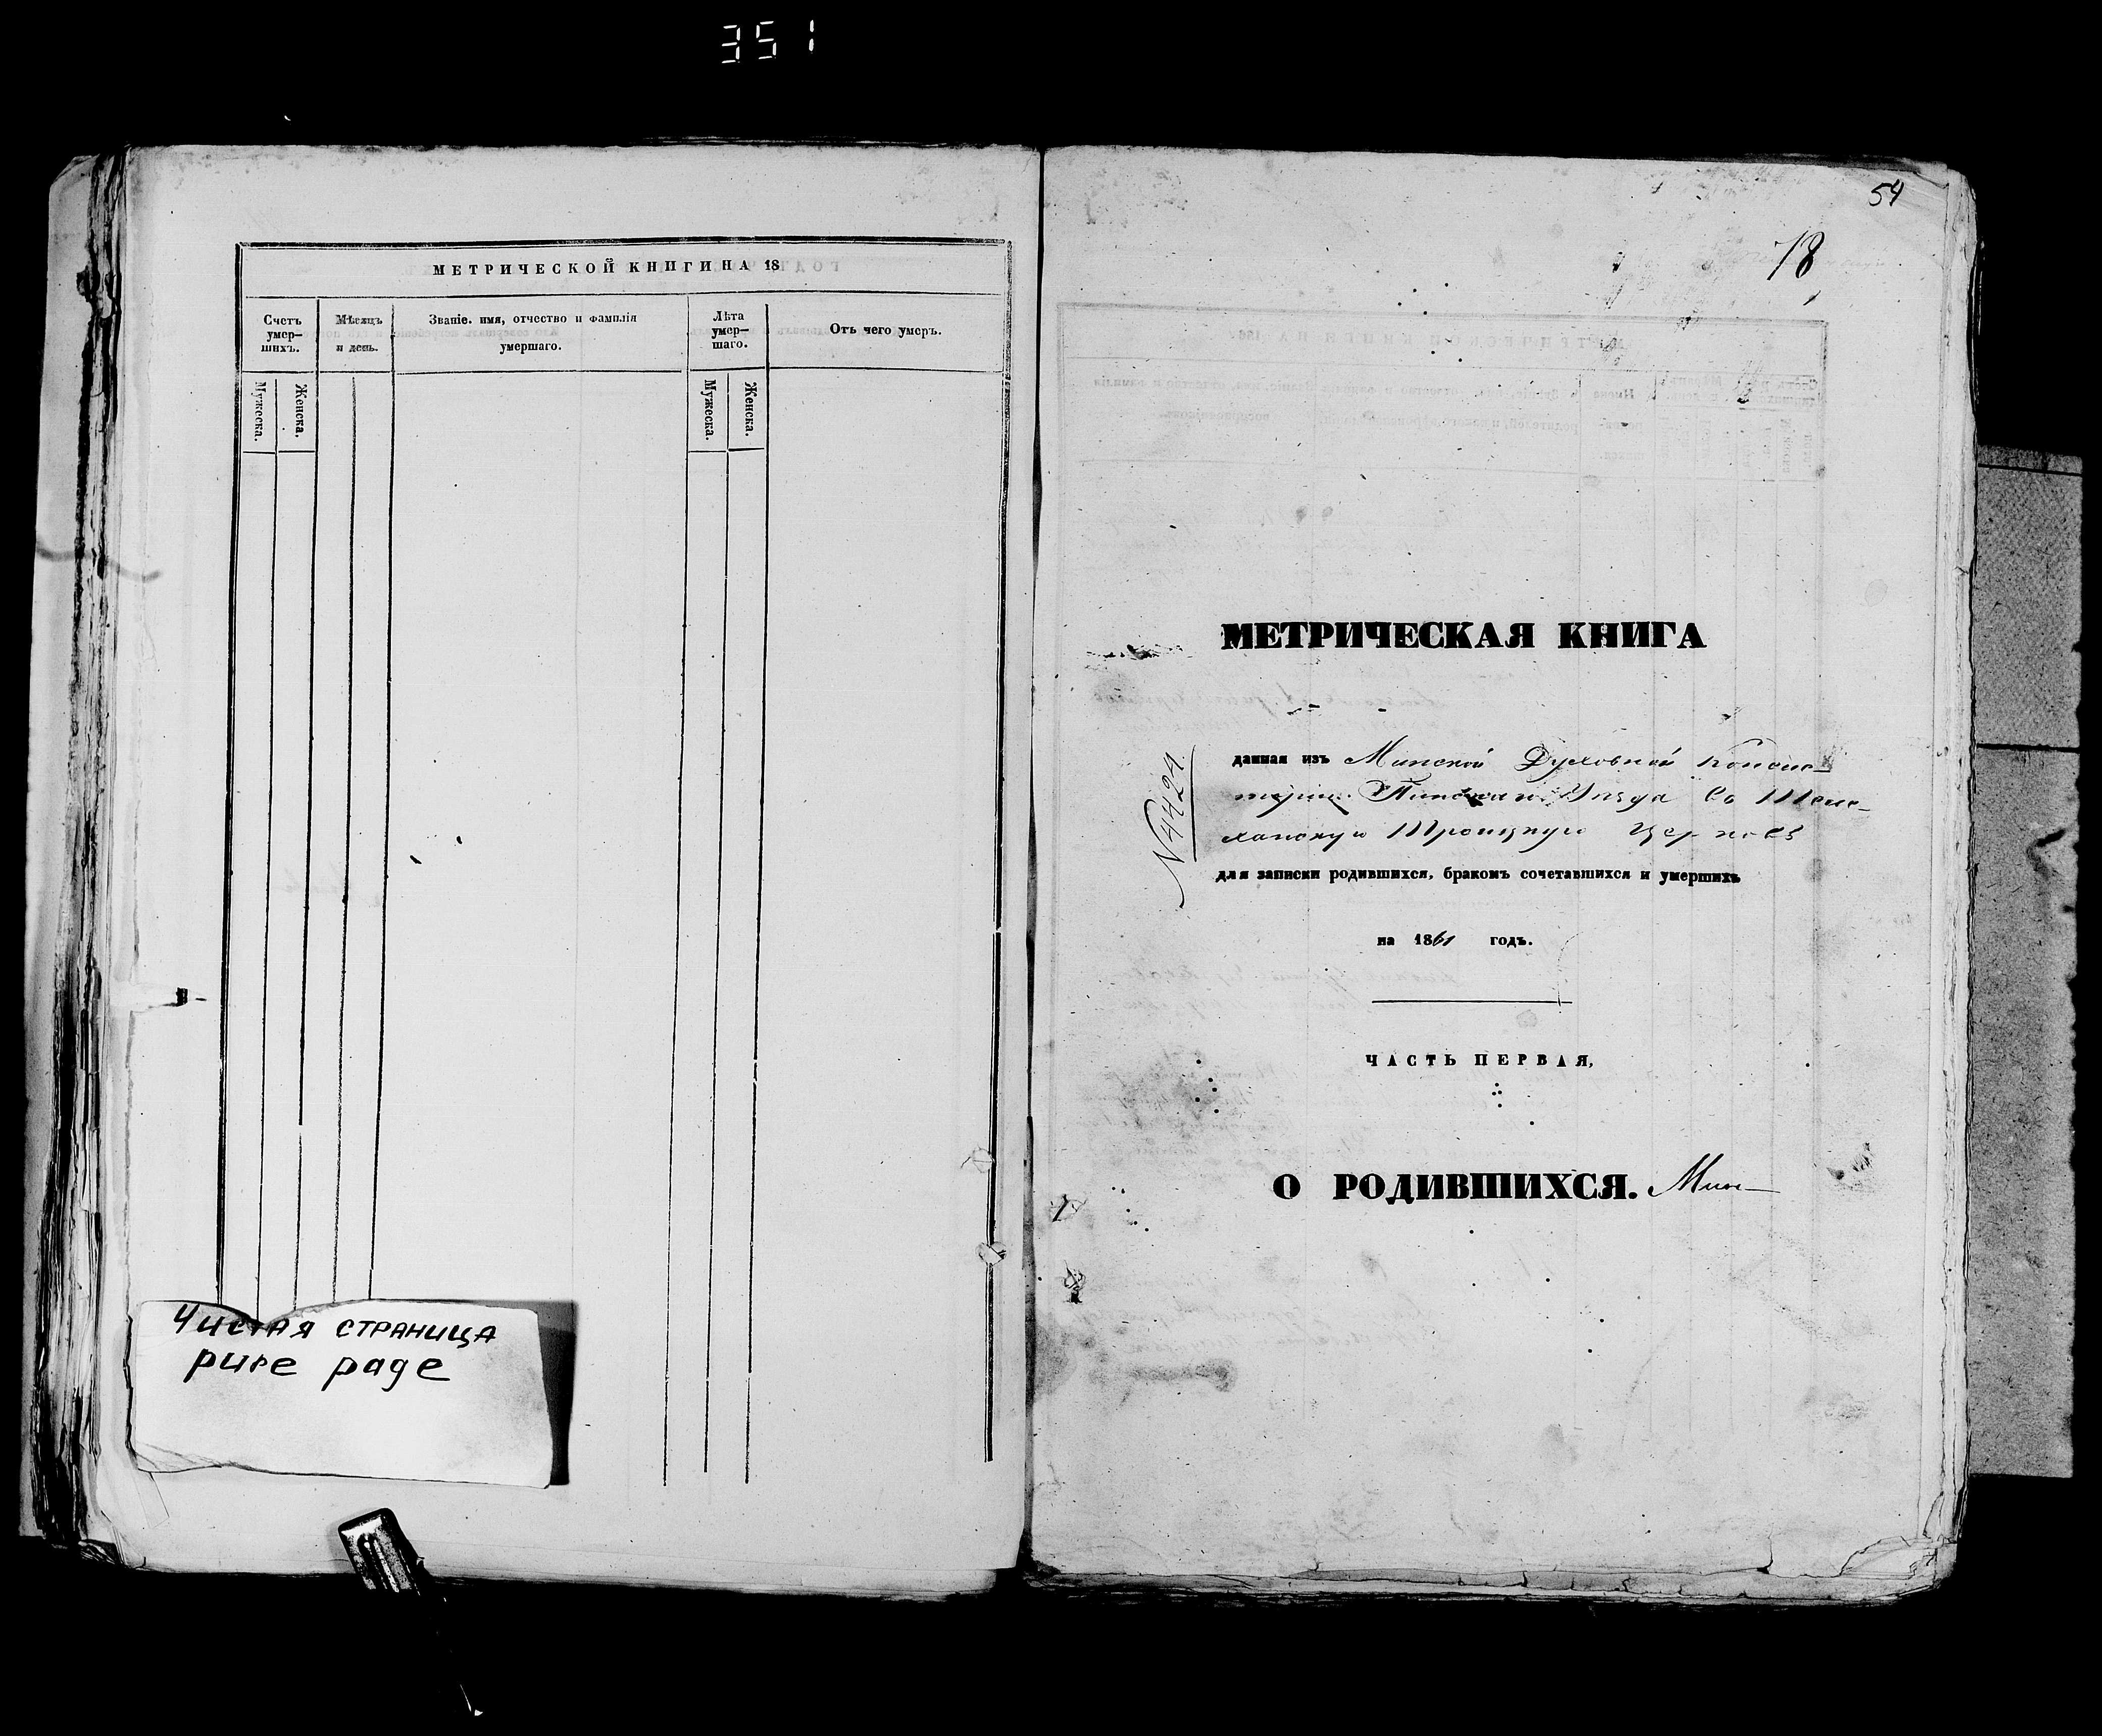 351
МЕТРИЧЕСКОЙ КНИГИ НА 18
Счетъ умер–шихъ.
Мѣсяцъ и день.
Званіе. имя, отчество и фамилія умершаго.
Лѣта умер–шаго.
Отъ чего умеръ.
Мужеска.
Женска.
Мужеска.
Женска.
Чистая страница
pure page
54
78
МЕТРИЧЕСКАЯ КНИГА
N 4424.
данная изъ Минской Духовной Консис–
торіи Пинскаго Уѣзда Въ Теле–
ханскую Троицкую Церковь
для записки родившихся, бракомъ сочетавшихся и умершихъ
на 1861 годъ.
ЧАСТЬ ПЕРВАЯ,
О РОДИВШИХСЯ. Мин–